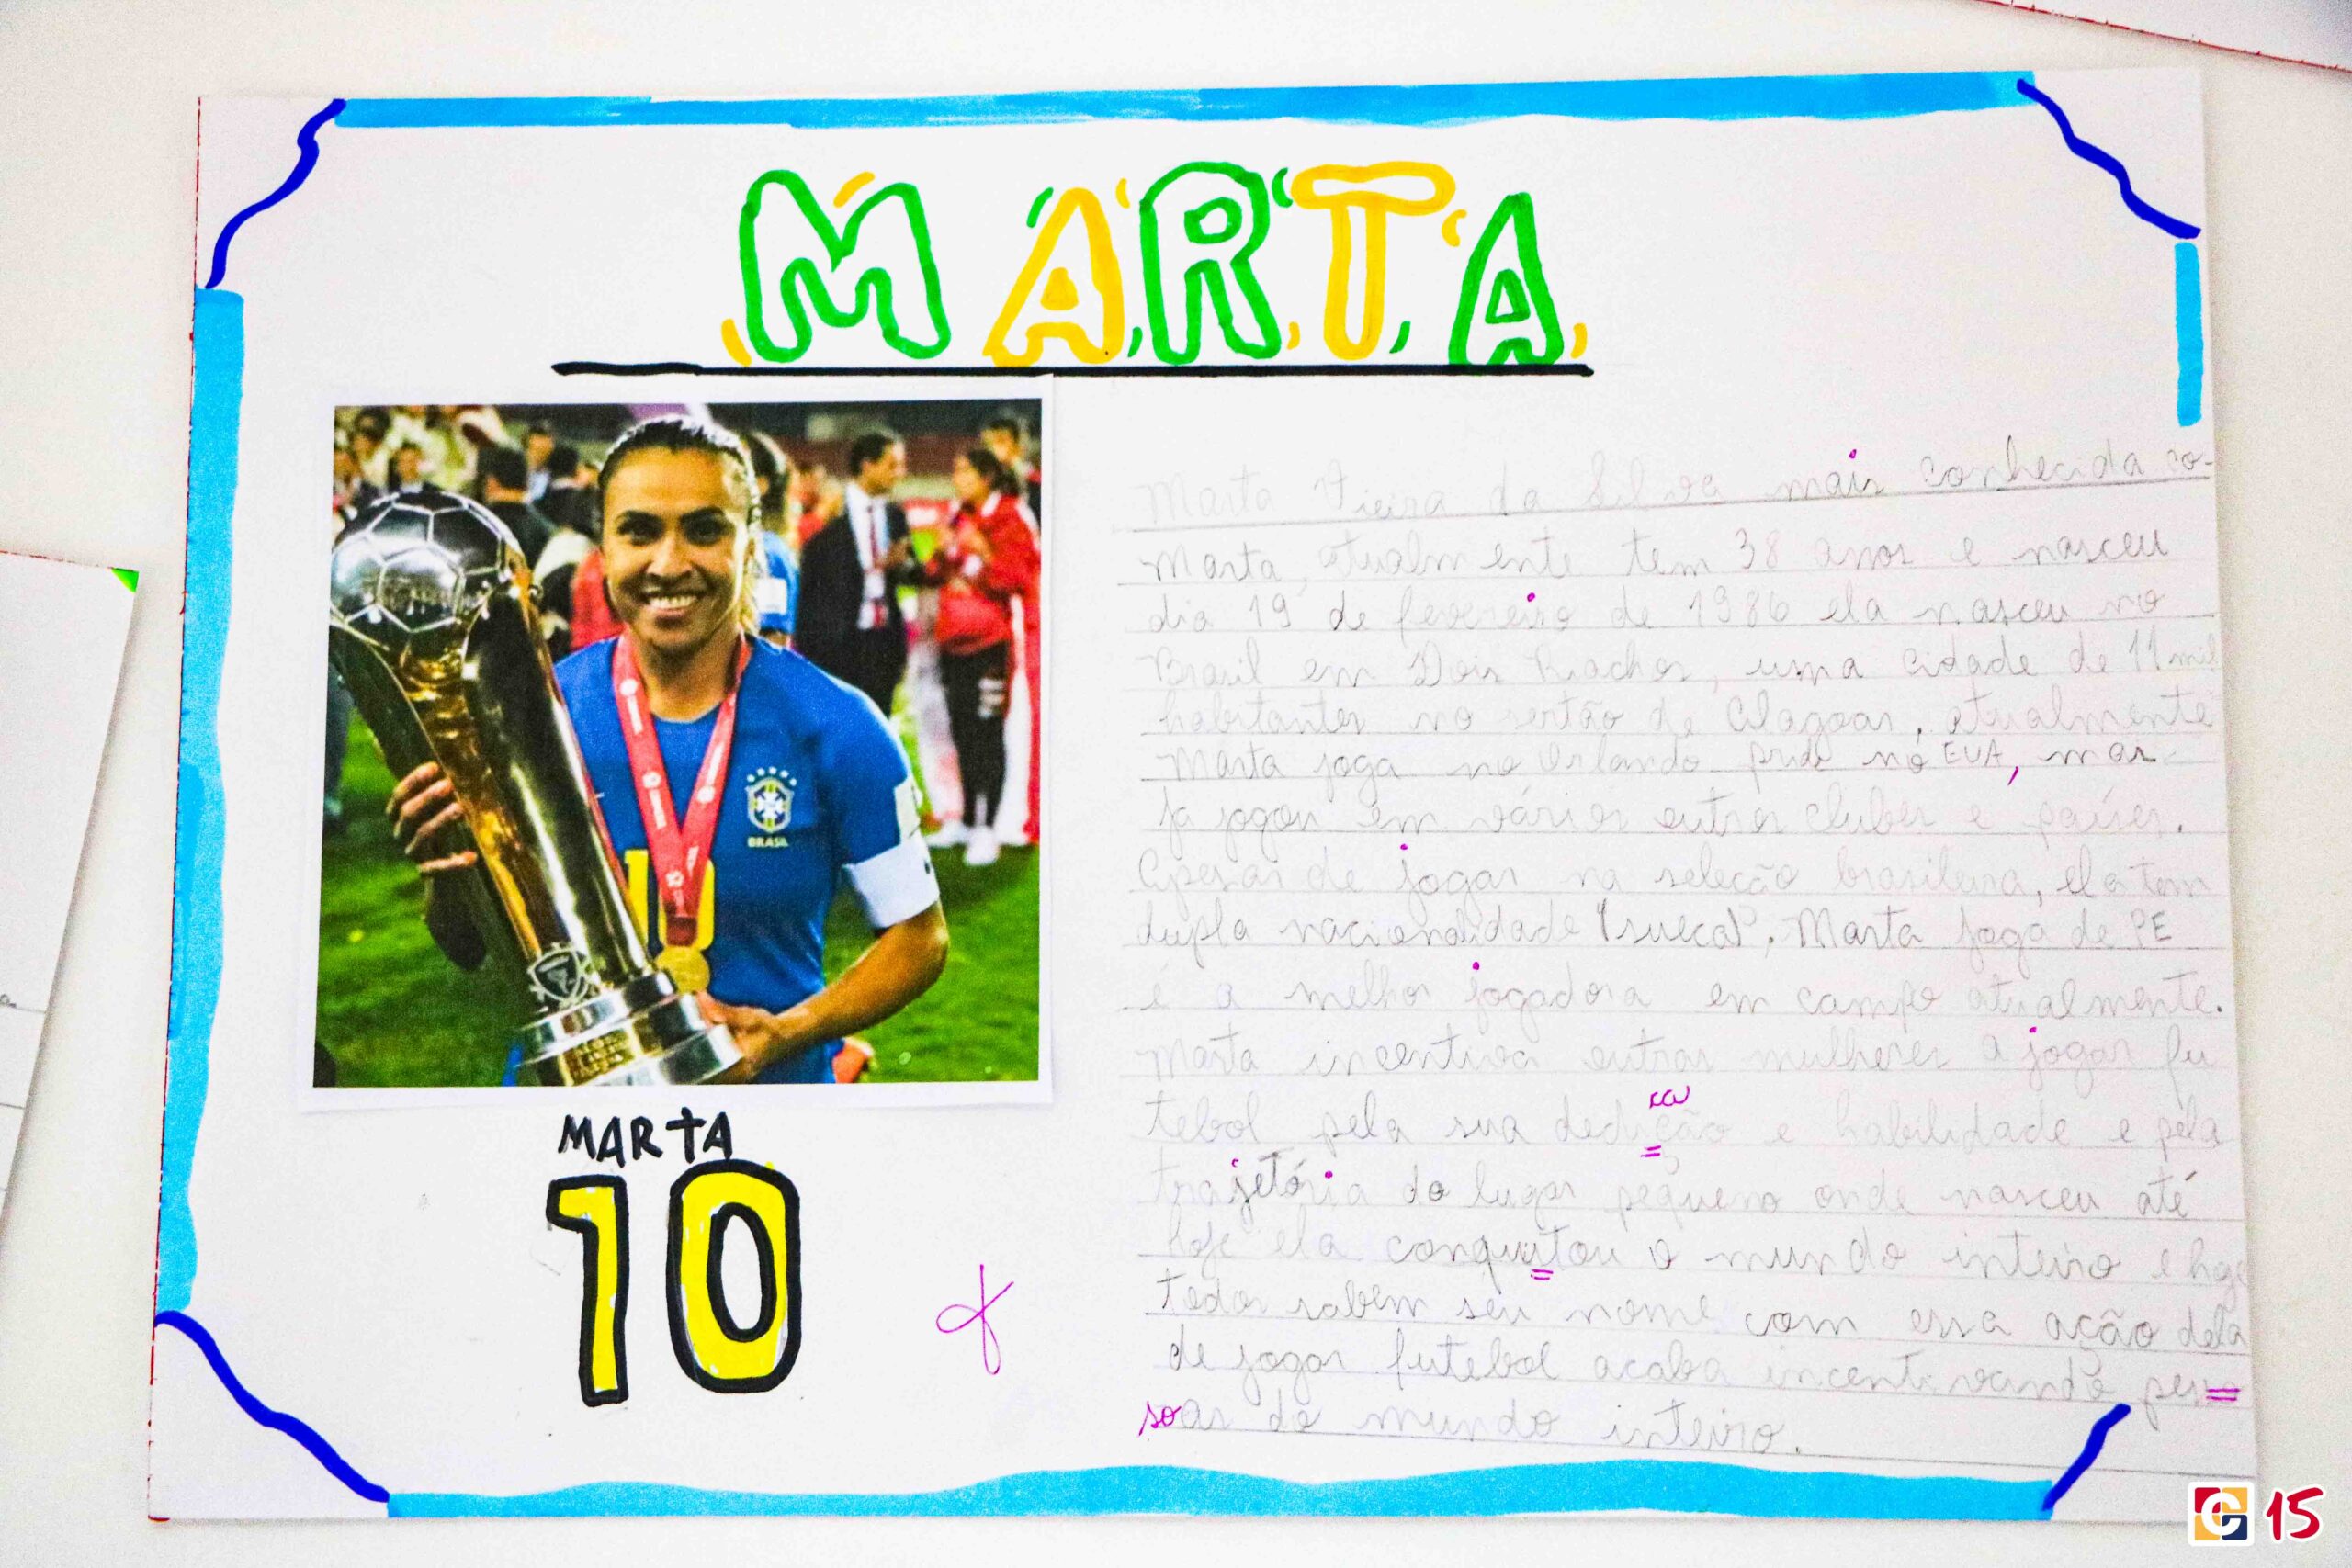 MARTA
BRASIL
10
MARTA
10
Marta Vieira da Silva mais conhecida co-
Marta, atualmente tem 38 anos e nasceu
dia 19 de fevereiro de 1986 ela nasceu no
Brasil em Dois Riachos, uma cidade de 11 mil
habitantes no sertão de Alagoas, atualmente
Marta joga no Orlando pride no EUA, mas
Ja jogou em vários outros clubes e países.
Apesar de jogar na seleção brasileira, ela tem
dupla nacionalidade "(sueca)". Marta joga de PE
é a melhor jogadora em campo atualmente.
Marta incentiva outras mulheres a jogar fu
tebol pela sua dedição e habilidade e pela
ca
trajetória do lugar pequeno onde nasceu até
hoje ela conquistou o mundo inteiro e hoje
todos sabem seu nome com essa ação dela
de jogar futebol acaba incentivando pes=
soas do mundo inteiro.
15